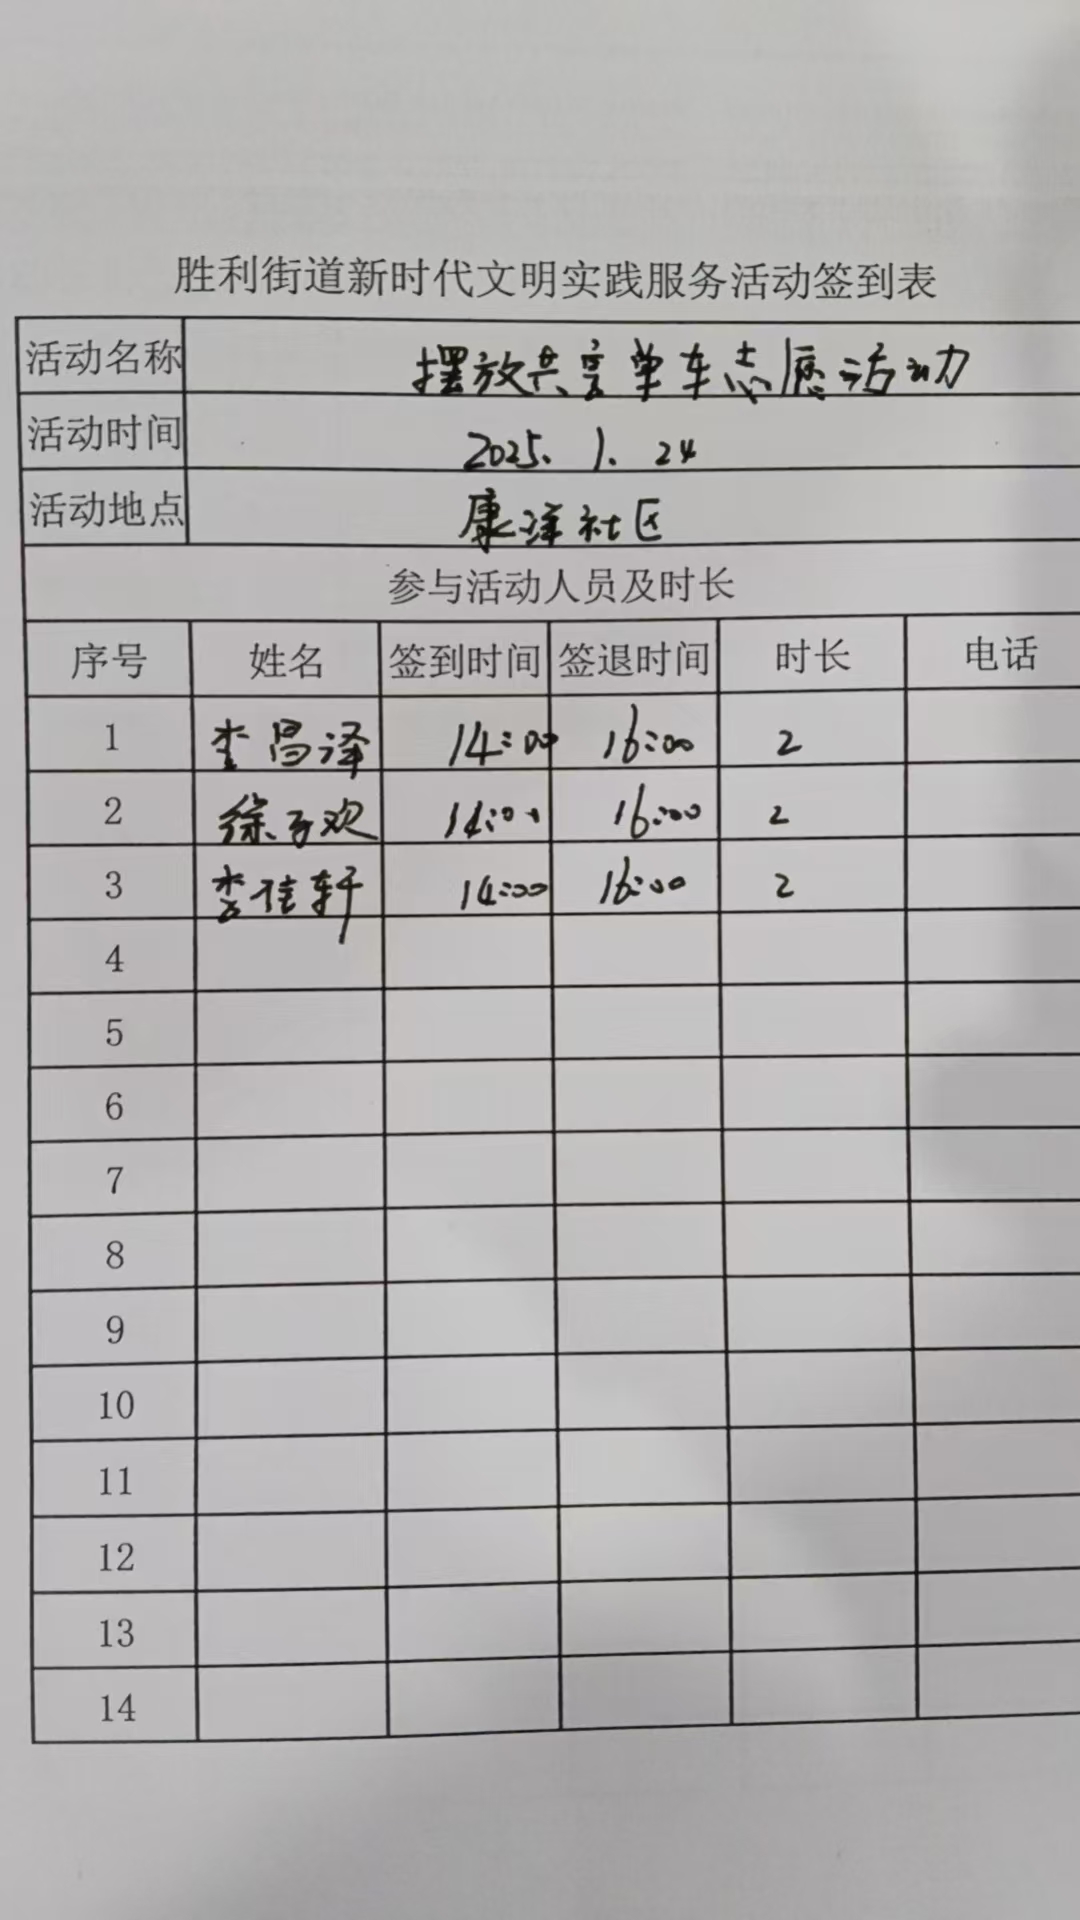 胜利街道新时代文明实践服务活动签到表
活动名称 摆放共享单车志愿活动
活动时间 2025.1.24
活动地点 康洋社区
参与活动人员及时长
序号 姓名 签到时间 签退时间 时长 电话
1 李昌泽 14:00 16:00 2
2 徐子欢 14:00 16:00 2
3 李佳轩 14:00 16:00 2
4
5
6
7
8
9
10
11
12
13
14